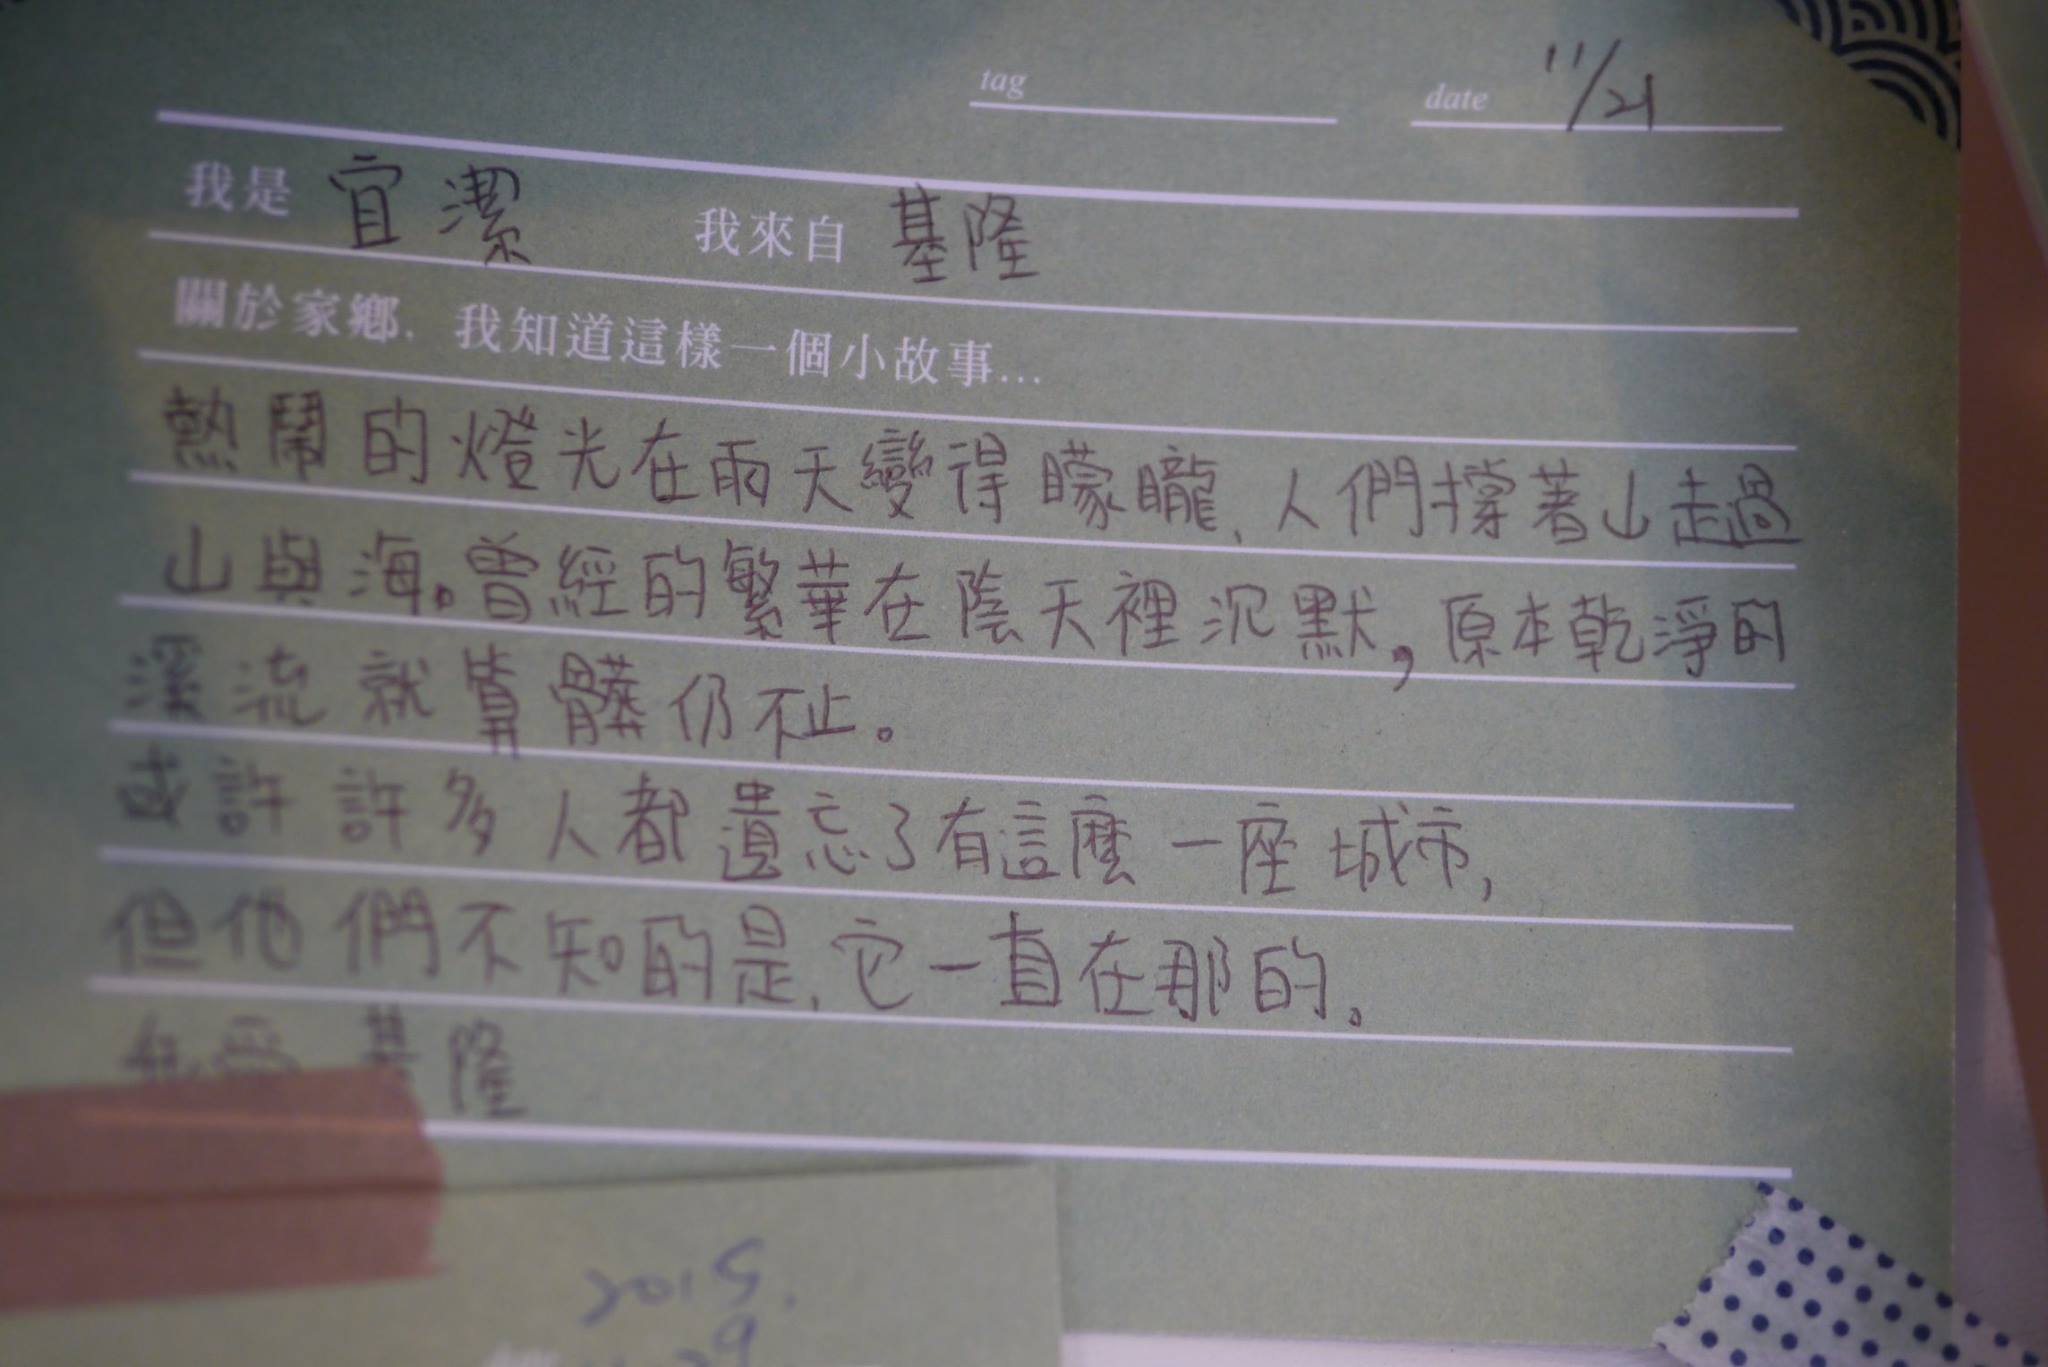 tag
date 11/21
我是 宜潔 我來自 基隆
關於家鄉, 我知道這樣一個小故事...
熱鬧的燈光在雨天變得矇矓,人們撐著山走過
山與海。曾經的繁華在陰天裡沉默,原本乾淨的
溪流就算髒仍不止。
或許許多人都遺忘了有這麼一座城市,
但他們不知的是,它一直在那的。
我愛基隆
2015.
29